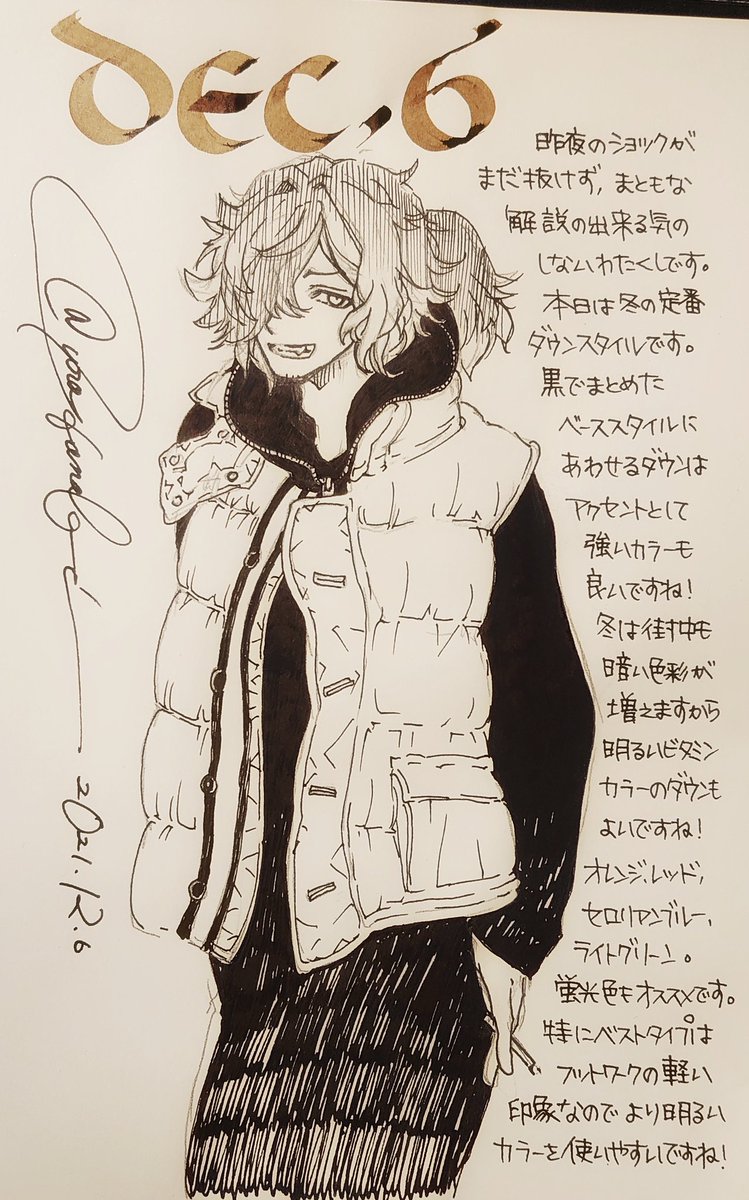 DEC, 6
昨夜のショックが
まだ抜けず, まともな
解説の出来る気の
しないわたくしです。
本日は冬の定番
ダウンスタイルです。
黒でまとめた
ベーススタイルに
あわせるダウンは
アクセントとして
強いカラーも
良いですね!
冬は街中も
暗い色彩が
増えますから
明るいビタミン
カラーのダウンも
よいですね!
オレンジ、レッド,
セロリアンブルー,
ライトグリーン。
蛍光色もオススメです。
特にベストタイプは
フットワークの軽い
印象なのでより明るい
カラーを使いやすいですね!
2021.12.6